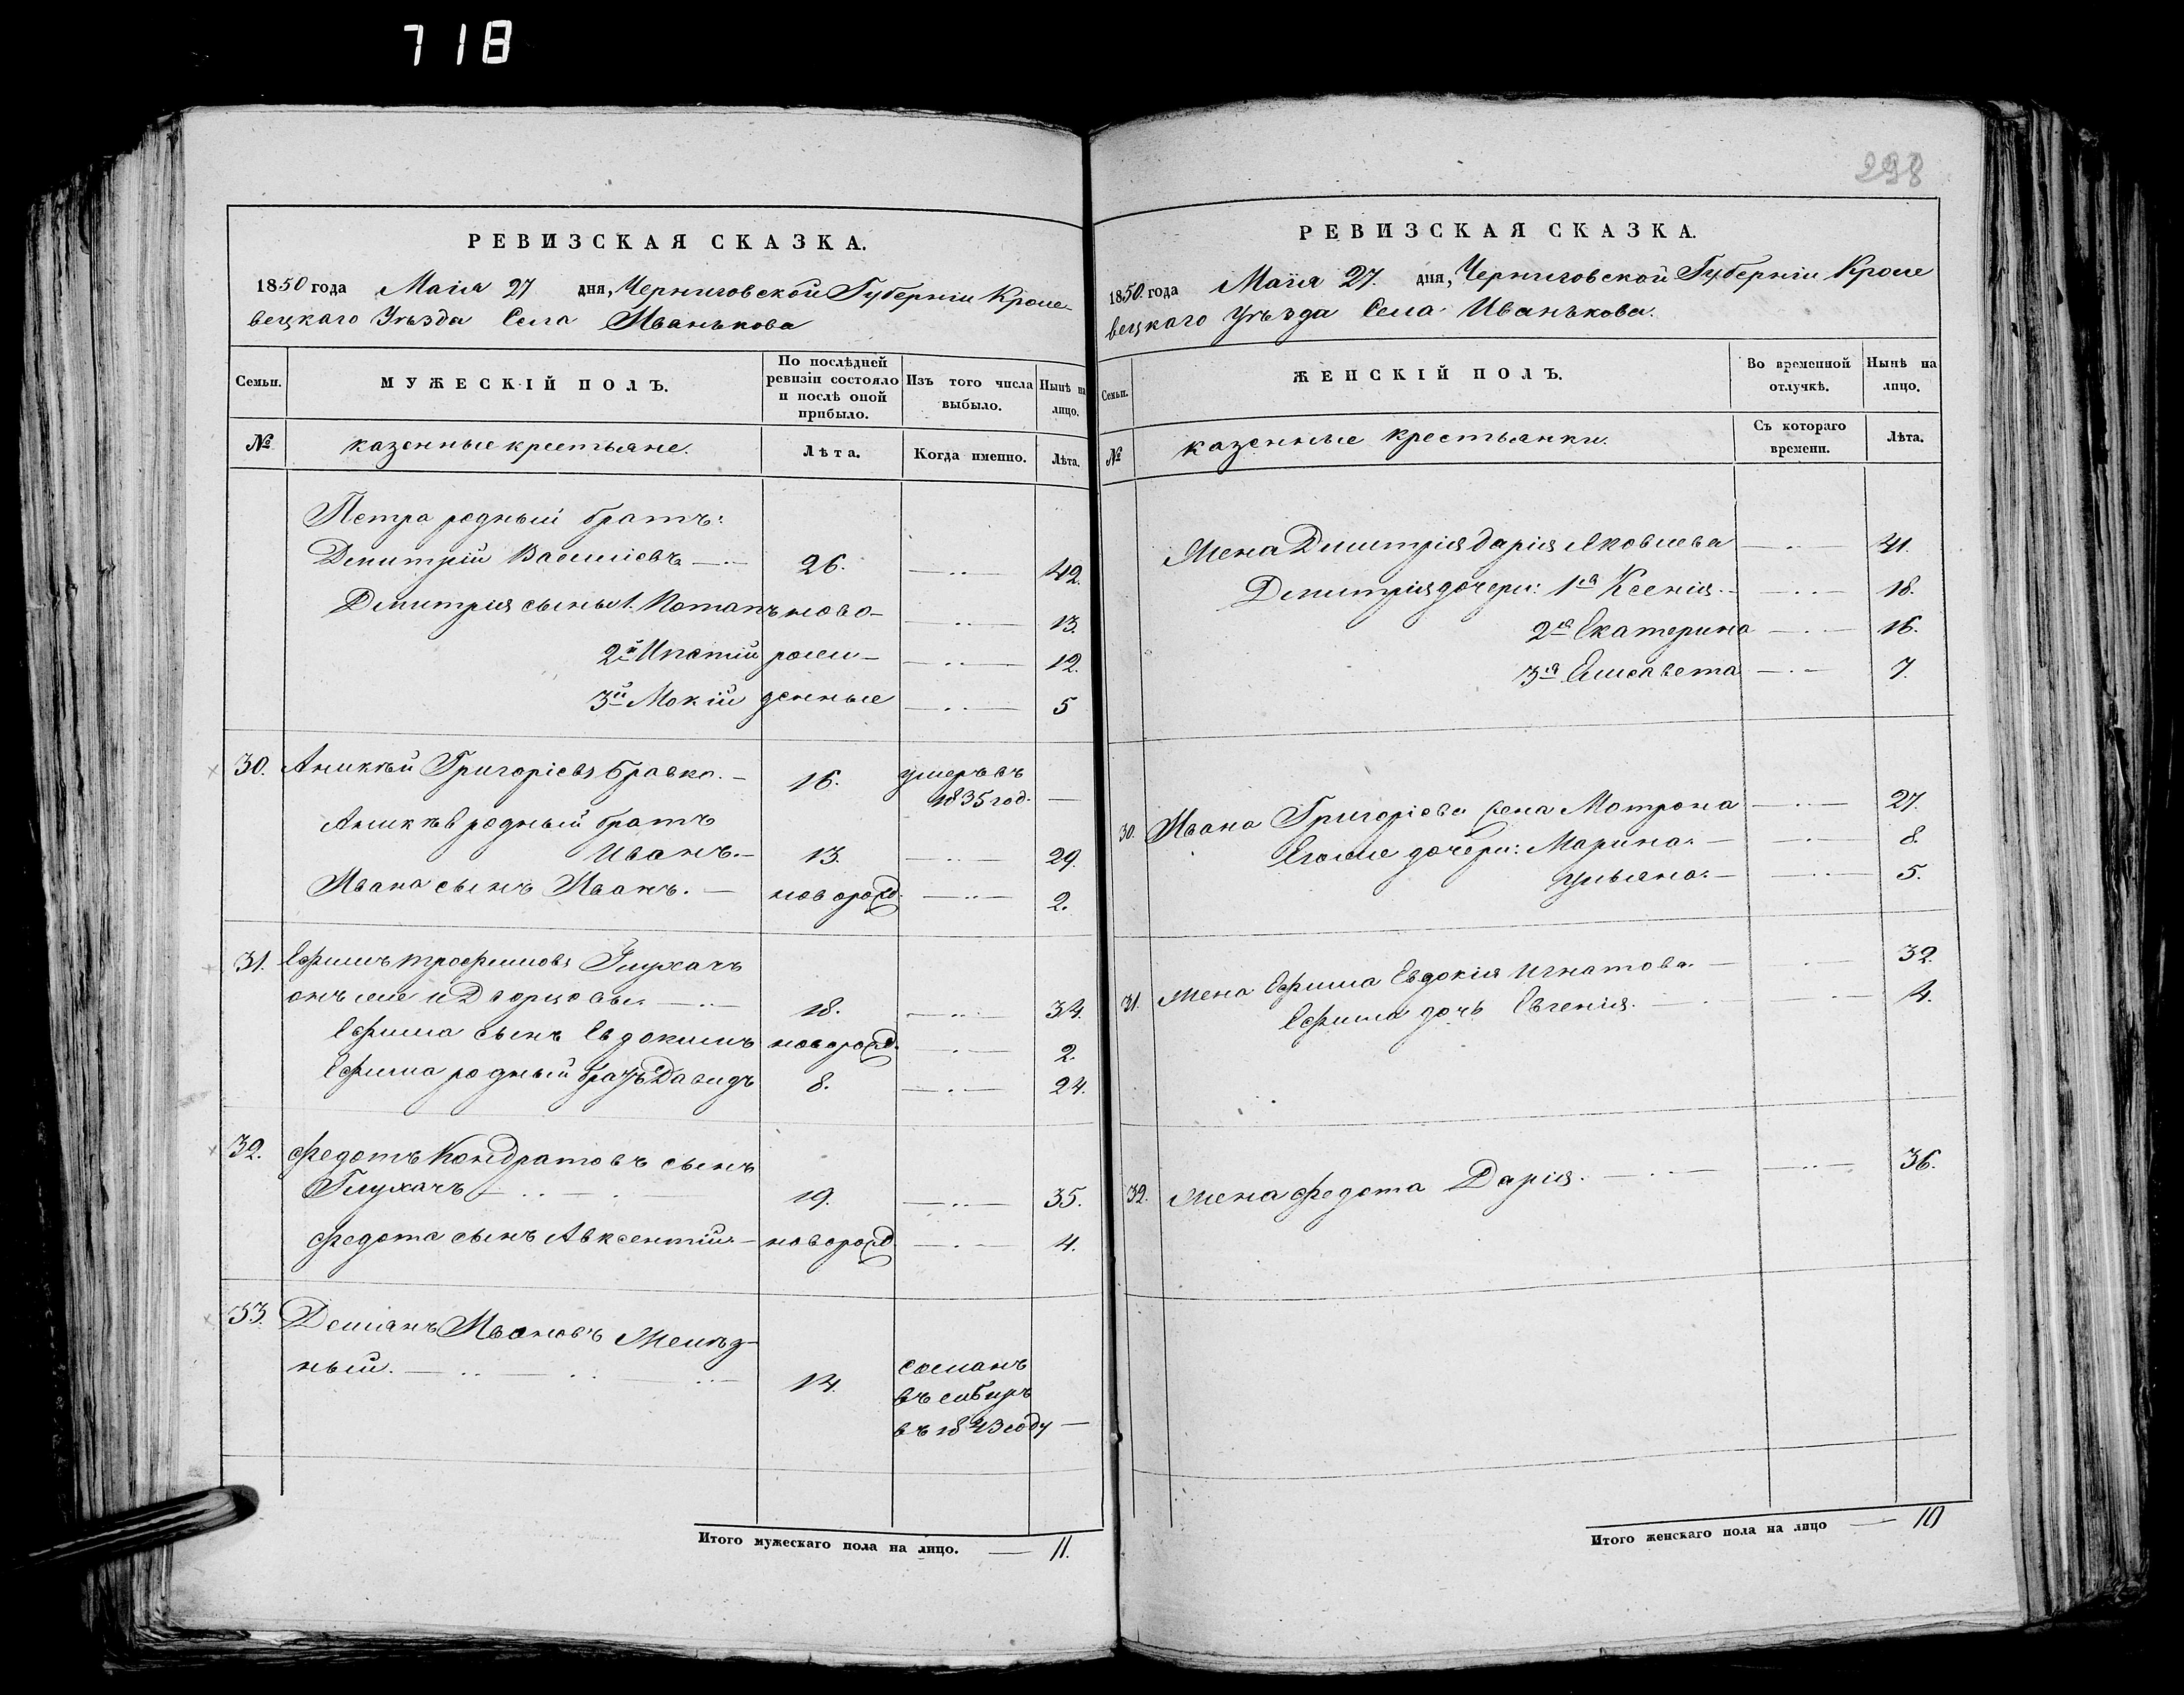 718
РЕВИЗСКАЯ СКАЗКА.
1850 года Маія 27 дня, Черниговской Губерніи Кроле-
вецкаго Уѣзда Села Иванькова
Семьи. МУЖЕСКІЙ ПОЛЪ. По послѣдней ревизіи состояло и послѣ оной прибыло. Изъ того числа выбыло. Нынѣ на лицо.
№ казенные крестьяне. Лѣта. Когда именно. Лѣта.
Петра родный братъ:
Димитрій Василіевъ 26. 42.
Димитрія сыны 1. Потапъ ново- 13.
2й Ипатій рож- 12.
3й Мокій денные 5
30. Аникѣй Григорієвъ Бравко. 16. умеръ въ
1835 год.
Аникѣя родный братъ
Иванъ. 13. 29.
Ивана сынъ Иванъ. новорожд. 2.
31. Ефимъ Трофимовъ Глухачъ
онъ же и Дворцовы. 18. 34.
Ефима сынъ Евдокимъ новорожд. 2.
Ефима родный братъ Давидъ 8. 24.
32. Федотъ Кондратовъ сынъ
Глухачъ 19. 35.
Федота сынъ Авксентій. новорожд. 4.
33. Деміанъ Ивановъ
ный. 14. сосланъ
въ сибирь
въ 1843 году
Итого мужескаго пола на лицо. 11.
298
РЕВИЗСКАЯ СКАЗКА.
1850 года Маія 27. дня, Черниговской Губерніи Кроле
вецкаго Уѣзда Села Иванькова.
Семьи. ЖЕНСКІЙ ПОЛЪ. Во временной отлучкѣ. Нынѣ на лицо.
№ казенные крестьянки. Съ котораго времени. Лѣта.
Жена Димитрія Дарія Яковлева 41.
Димитрія дочери: 1я Ксенія. 18.
2я Екатерина 16.
3я Елисавета 7.
30. Ивана Григоріева жена Мотрона 27.
Егоже дочери: Марина. 8.
Ульяна. 5.
31. Жена Ефима Евдокія Игнатова. 32.
Ефима дочь Евгенія. 4.
32. Жена Федота Дарія. 36.
Итого женскаго пола на лицо 10